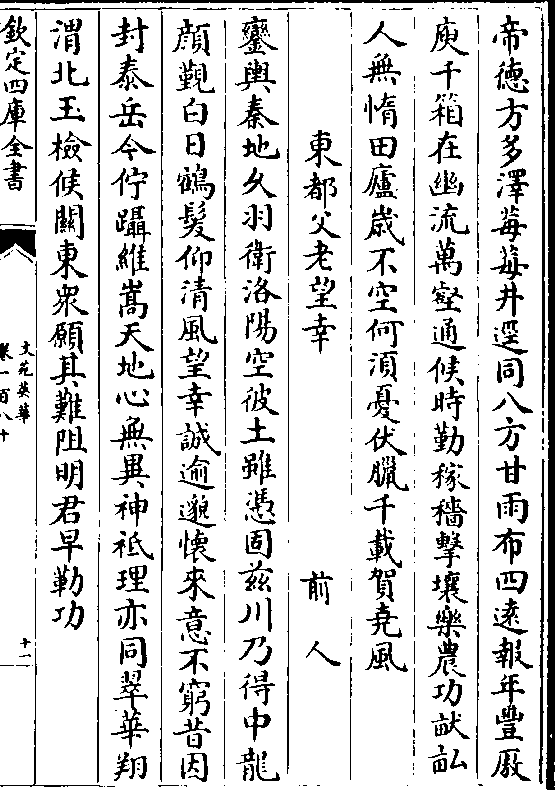 帝德方多澤莓莓井逕同八方甘雨布四逺報年豐厫
庾千箱在幽流萬壑通候時勤稼穡擊壤樂農功畎畆
人無惰田廬嵗不空何湏憂伏臘千載賀堯風
東都父老望幸 前人
鑾輿秦地久羽衛洛陽空彼土雖憑固兹川乃得中龍
顔覲白日鶴髮仰清風望幸誠逾邈懷來意不窮昔因
封泰岳今佇躡維嵩天地心無異神祗理亦同翠華翔
渭北玉檢候關東衆願其難阻明君早勒功
欽定四庫全書
文苑英華
卷一百八十
十一